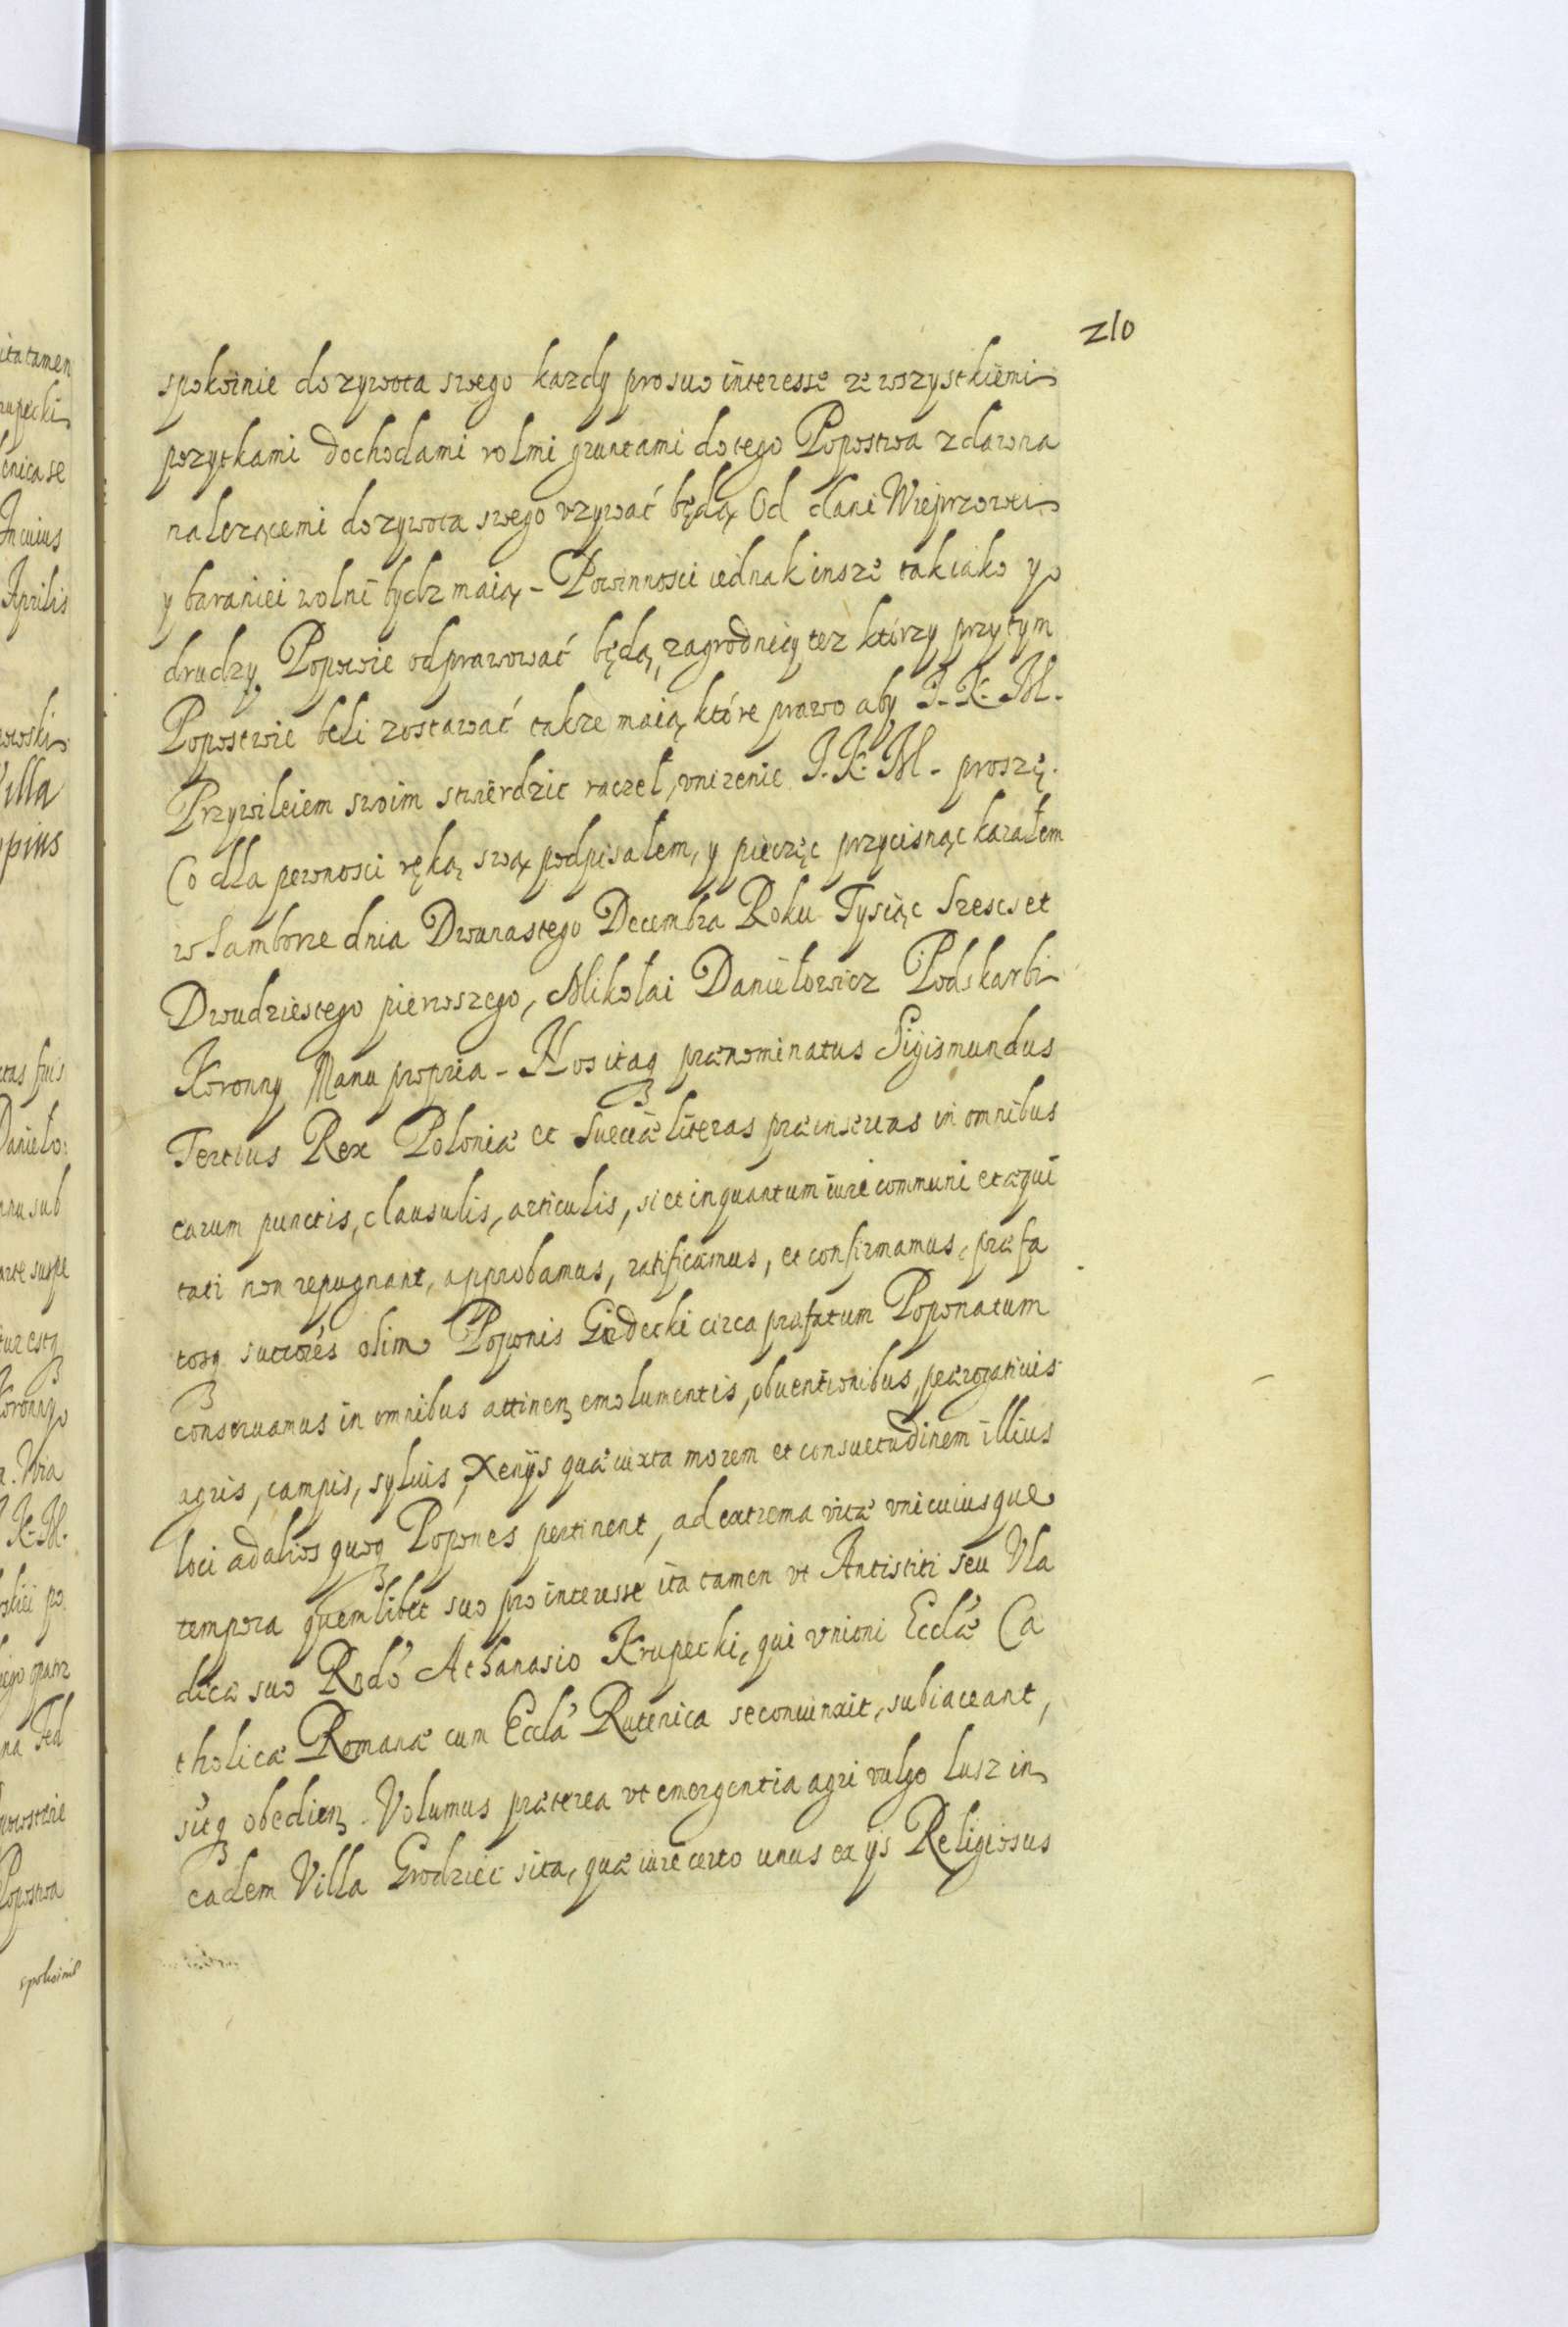 210
spokoinie do zywota swego kazdy pro suo interesse ze wszystkiemi
pozytkami dochodami rolmi gruntami do tego Popostwa zdawna
nalezącemi do zywota swego vzywać będą Od dani Wieprzowei
y baraniei wolni bydz maią - Powinnosci iednak insze tak iako y
drudzy Popowie odprawować będą, zagrodnicy tez ktorzy przy tym
Popostwie beli zostawać takze maią, które prawo aby J. K. M.
Przywileiem swoim stwierdzic raczel, vnizenie J. K. M. proszę.
Co dla pewnosci ręką swą podpisałem, y pieczęc przycisnąc kazałem
w Samborze dnia Dwunastego Decembra Roku Tysiąc Szescset
Dwudziestego pierwszego, Mikołai Daniełowicz Podskarbi
Koronny Manu propria - Nos itaq prænominatus Sigismundus
Tertius Rex Poloniæ et Sueciæ literas præinsertas in omnibus
earum punctis, clausulis, articulis, si et in quantum iuri communi et æqui
tati non repugnant, approbamus, ratificamus, et confirmamus, præfa
tosq succores olim Poponis Grodecki circa præfatum Poponatum
conseruamus in omnibus attinen emolumentis, obuentionibus, prærogatiuis
agris, campis, syluis, Xenijs quæ iuxta morem et consuetudinem illius
loci ad alios quoq Popones pertinent, ad extrema vitæ vnicuiusque
tempora quemlibet suo pro interesse ita tamen vt Antistiti seu Vla
dicæ suo Rndo Athanasio Krupecki, qui vnioni Ecclæ Ca
tholicæ Romanæ cum Eccla Rutenica se coniunxit, subiaceant,
sitq obedien. Volumus præterea vt emergentia agri vulgo Lusz in
eadem Villa Grodziec sita, quæ iure certo unus ex ijs Religiosus
ita tamen
Aprilis
illa
nnu sub
Popostwa
spokoinie